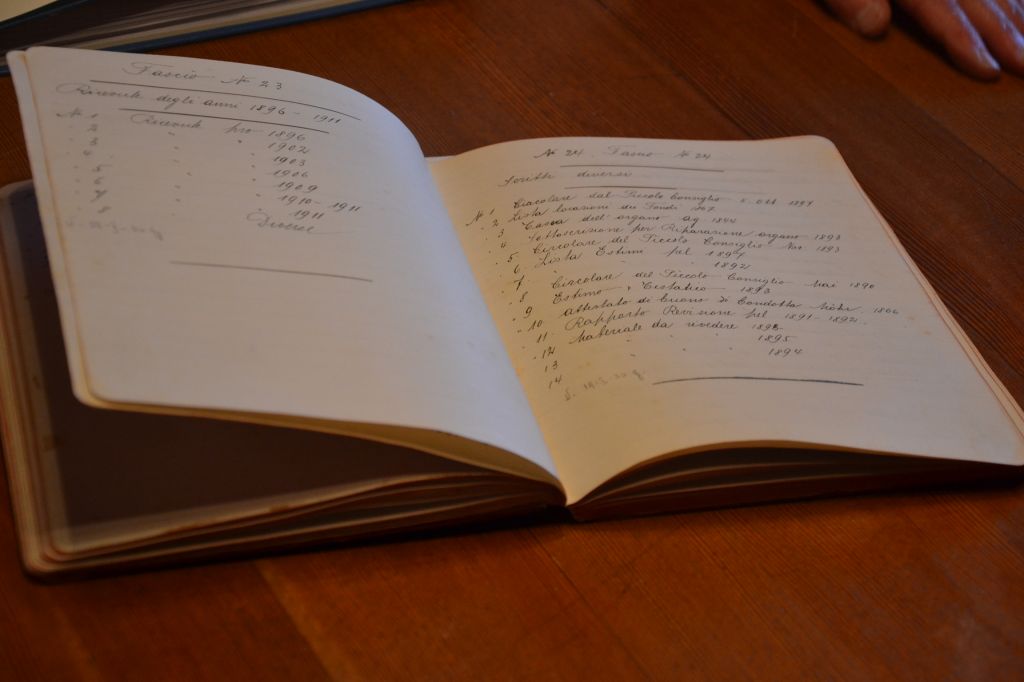 Fascio No 23
Ricevute degli anni 1896 - 1911
No 1 Ricevute pro 1896
" 2 " " 1902
" 3 " " 1903
1906
1909
1910-1911
1911
8 Diverse
No 24 Fascio No 24
Scritti diversi
No 1 Circolare dal Piccolo Consiglio 1894
" 2 Lista locazioni dei Fondi 1867
" 3 Cassa dell' organo Ag. 1844
" 4 Sottoscrizione per Riparazione organo 1893
" 5 Circolare del Piccolo Consiglio Nov. 1893
" 6 Lista Estimi pel 1897
" 7 " " " 1892
" 8 Circolare del Piccolo Consiglio Mai 1890
" 9 Estimo 1893
" 10 Attestato di Buona di Condotta 1866
" 11 Rapporto Revisione pel 1891-1892.
" 12 Materiale da rivedere 1896
13 " " " 1895
14 " " " 1894